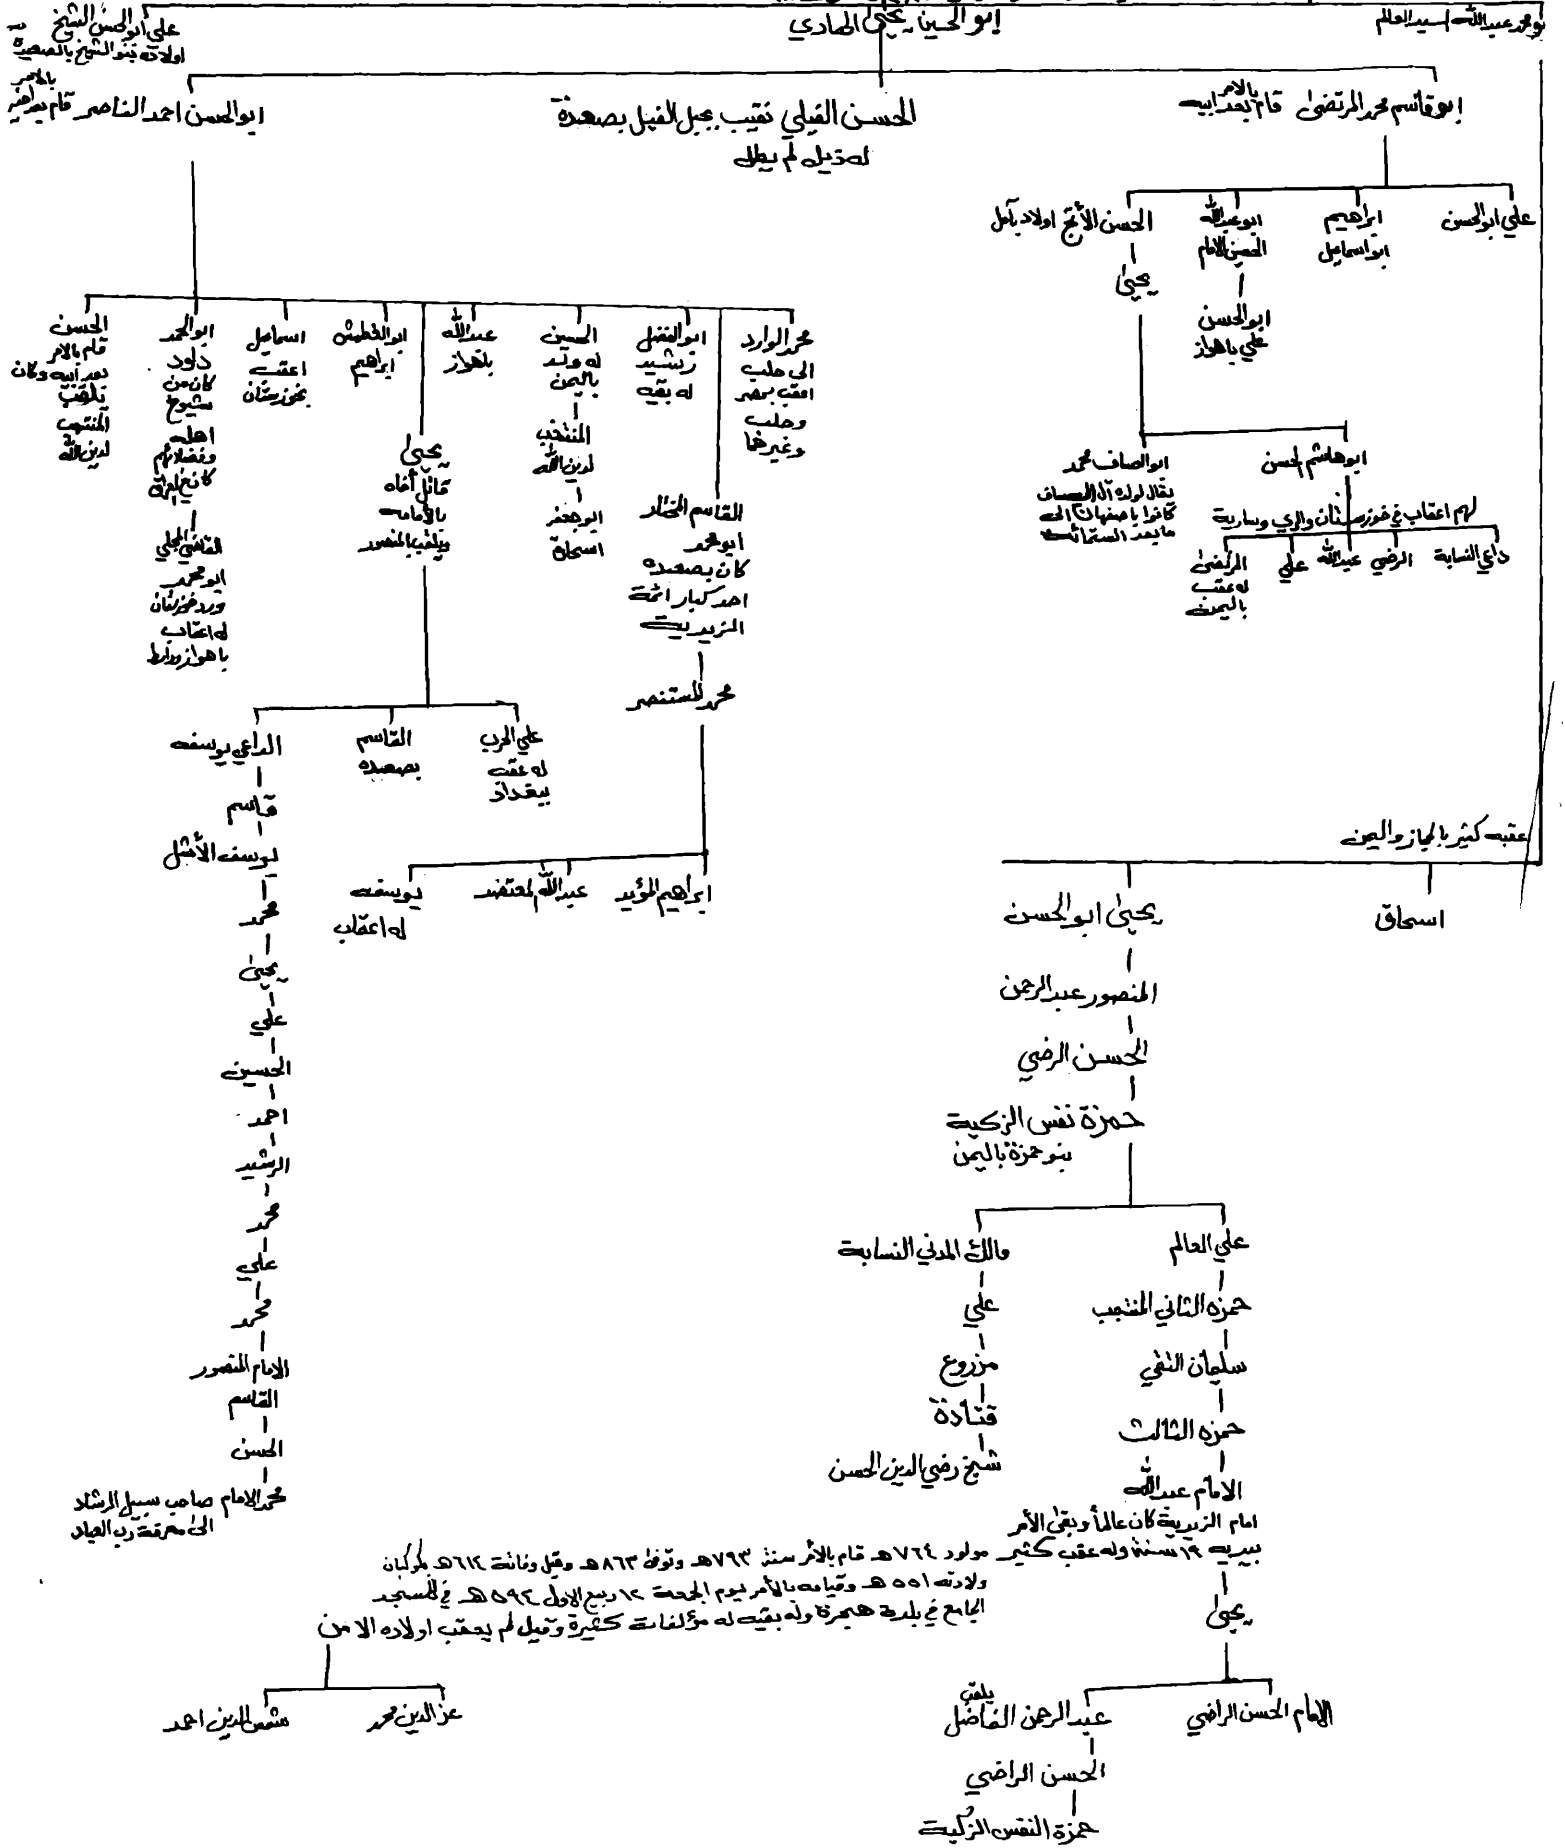 ابو محمد عبدالله السيد العالم
ابو الحسين يحيى الهادي
علي ابو الحسن الشيخ
اولاده بنو الشيخ بالصعيدة
ابو قاسم محمد المرتضى قام بالامر بعد ابيه
الحسن الفيلي نقيب بجبل الفيل بصعدة
له ذيل لم يطل
ابو الحسن احمد الناصر قام بالامر بعد اخيه
علي ابو الحسن
ابراهيم
ابو اسماعيل
ابو عبدالله
الحسين الامام
ابو الحسن
علي باهواز
الحسن الأبح اولاد بآمل
يحيى
ابو هاشم الحسن
ابو الصاف محمد
يقال لولده آل ابي الصاف
كانوا باصفهان الى
ما بعد الستمائة
لهم اعقاب في خوزستان والري وسارية
داعي النسابة
الرضي
عبدالله
علي
المرتضى
له عقب
باليمن
محمد الوارد
الى حلب
اعقب بمصر
وحلب
وغيرهما
ابو الفضل
رشيد
له بقية
الحسين
له ولد
باليمن
المنتخب
لدين الله
ابو جعفر
اسحاق
عبدالله
باهواز
ابو الغطمش
ابراهيم
اسماعيل
اعقب
بخوزستان
ابو الحمد
داود
كان من
شيوخ
اهله
وفضلائهم
كان في العراق
القاضي المحلي
ابو محمد
ورد خوزستان
له اعقاب
باهواز وواسط
الحسن
قام بالامر
بعد ابيه وكان
يلقب
المنتجب
لدين الله
يحيى
قاتل أخاه
بالأمامة
ويلقب بالمنصور
القاسم المختار
ابو محمد
كان بصعده
احد كبار ائمة
الزيدية
محمد المستنصر
علي الحرب
له عقب
ببغداد
القاسم
بصعده
الداعي يوسف
قاسم
يوسف الأشل
محمد
يحيى
علي
الحسين
احمد
الرشيد
محمد
علي
محمد
الامام المنصور
القاسم
الحسن
محمد الامام صاحب سبيل الرشاد
الى معرفة رب العباد
ابراهيم المؤيد
عبدالله المعتضد
يوسف
له اعقاب
عقبه كثير بالحجاز واليمن
اسحاق
يحيى ابو الحسن
المنصور عبدالرحمن
الحسن الرضي
حمزة نفس الزكية
بنو حمزة باليمن
علي العالم
حمزه الثاني المنتجب
سليمان التقي
حمزه الثالث
الامام عبدالله
مالك المدني النسابة
علي
مزروع
قتادة
شيخ رضي الدين الحسن
امام الزيدية كان عالماً وبقى الأمر
بيديه ١٩ سنة وله عقب كثير مولود ٧٦٤ هـ قام بالأمر سنة ٧٩٣ هـ وتوفى ٨٦٣ هـ وقيل وفاته ٦١٤ هـ بكوكبان
ولادته ٥٥١ هـ وقيامه بالأمر يوم الجمعة ١٢ ربيع الاول ٥٩٤ هـ في المسجد
الجامع في بلدة هجرة وله بقية له مؤلفات كثيرة وقيل لم يعقب اولاده الا من
يحيى
عز الدين محمد
شمس الدين احمد
الامام الحسن الراضي
عبد الرحمن يلقب الفاضل
الحسن الراضي
حمزة النفس الزكية